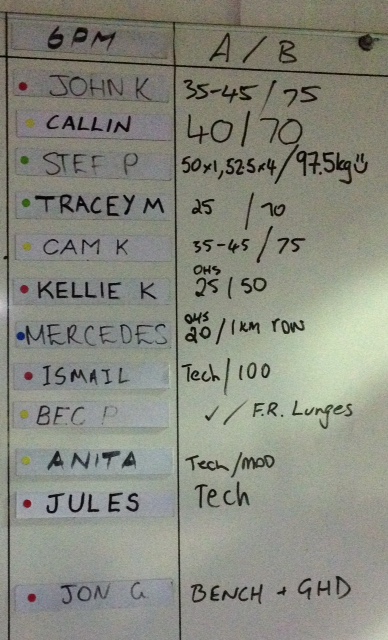 6PM A / B
JOHN K 35-45 / 75
CALLIN 40 / 70
STEF P 50x1, 52.5x4 / 97.5kg
TRACEY M 25 / 70
CAM K 35-45 / 75
KELLIE K OHS 25 / 50
MERCEDES OHS 20 / 1KM row
ISMAIL Tech / 100
BEC P ✓ / F.R. Lunges
ANITA Tech / MOD
JULES Tech
JON G BENCH + GHD